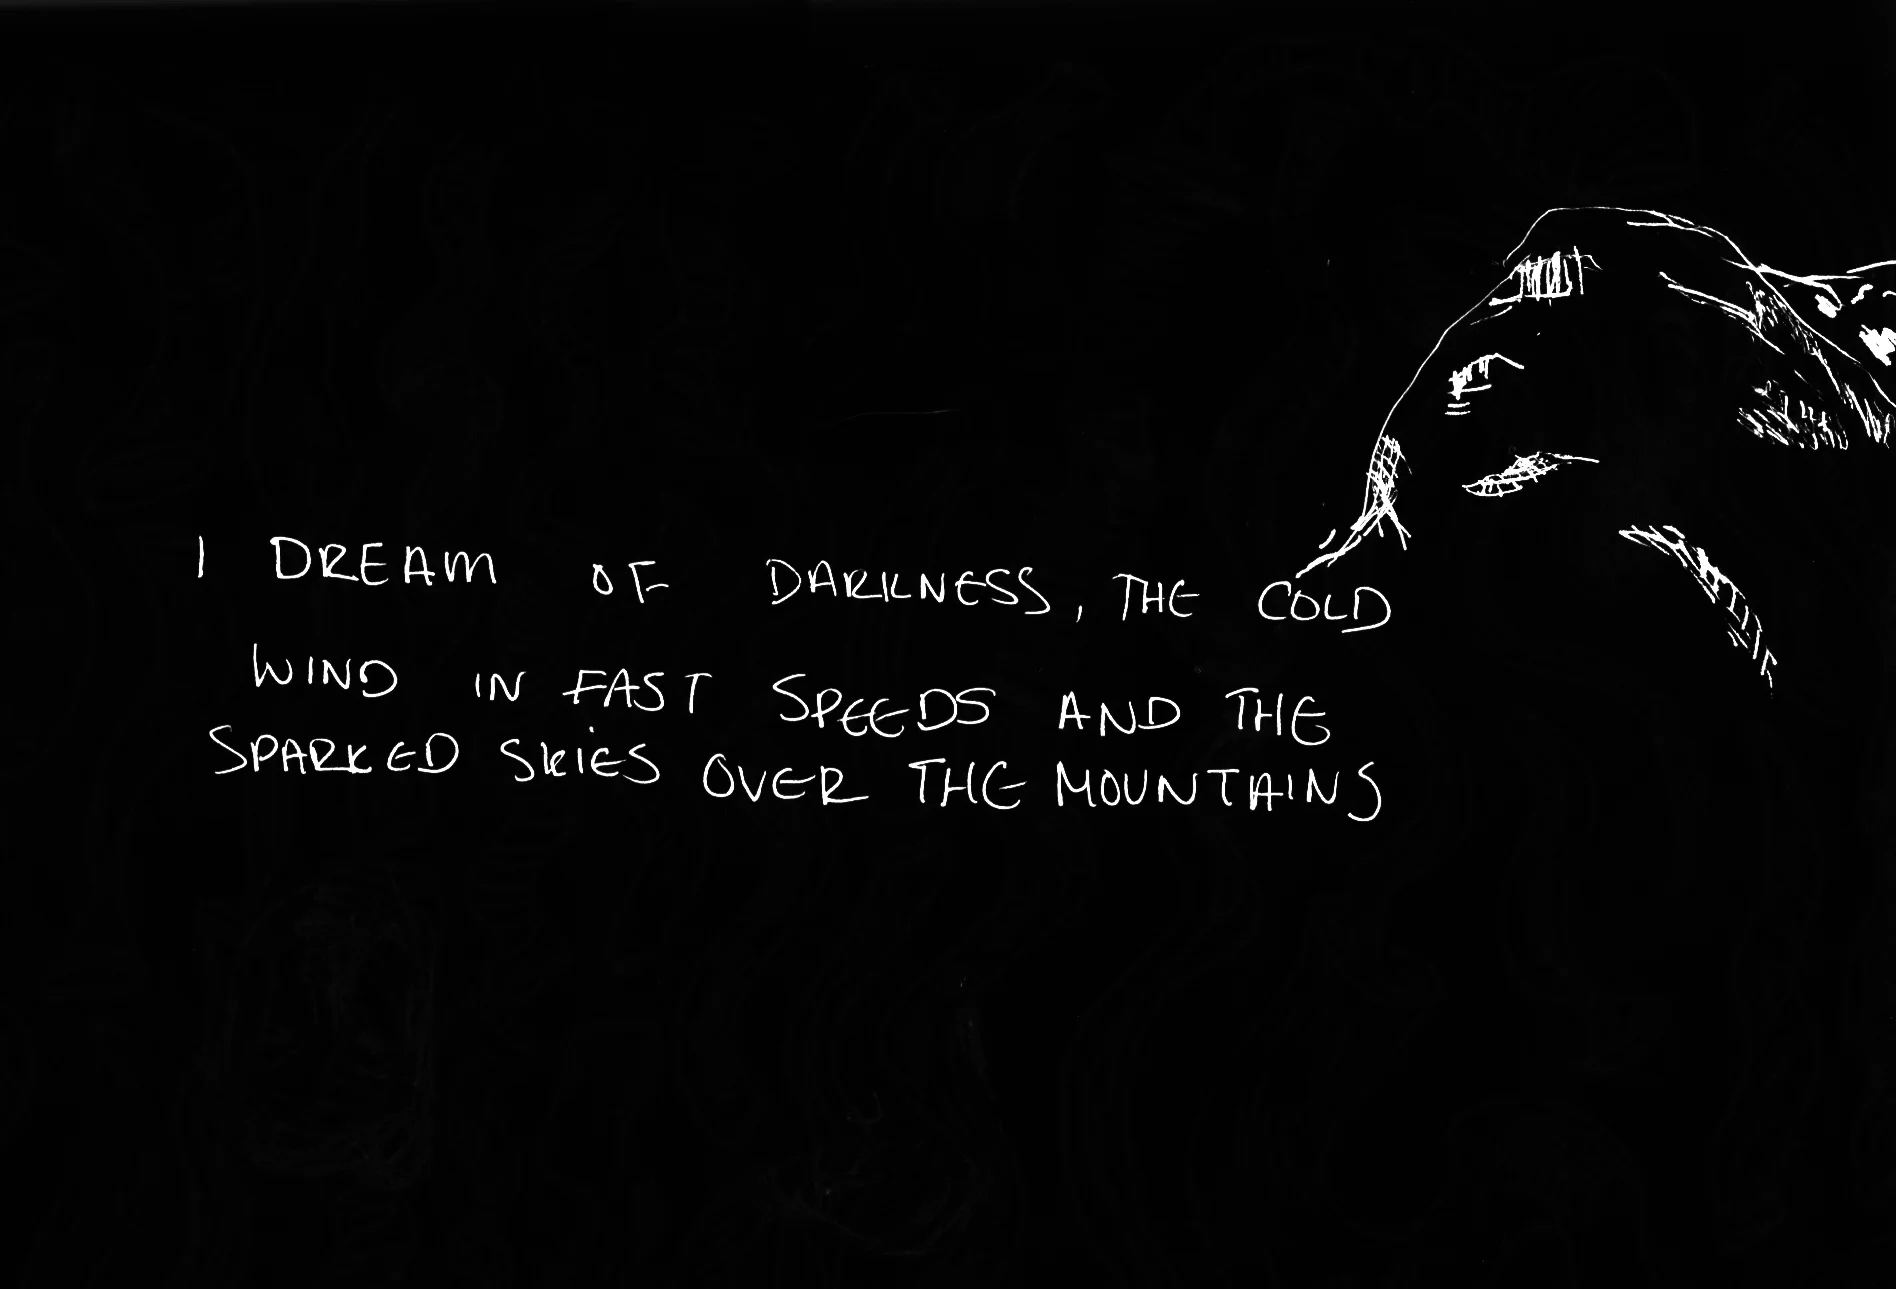 I DREAM OF DARKNESS, THE COLD
WIND IN FAST SPEEDS AND THE
SPARKED SKiES OVER THE MOUNTAINS